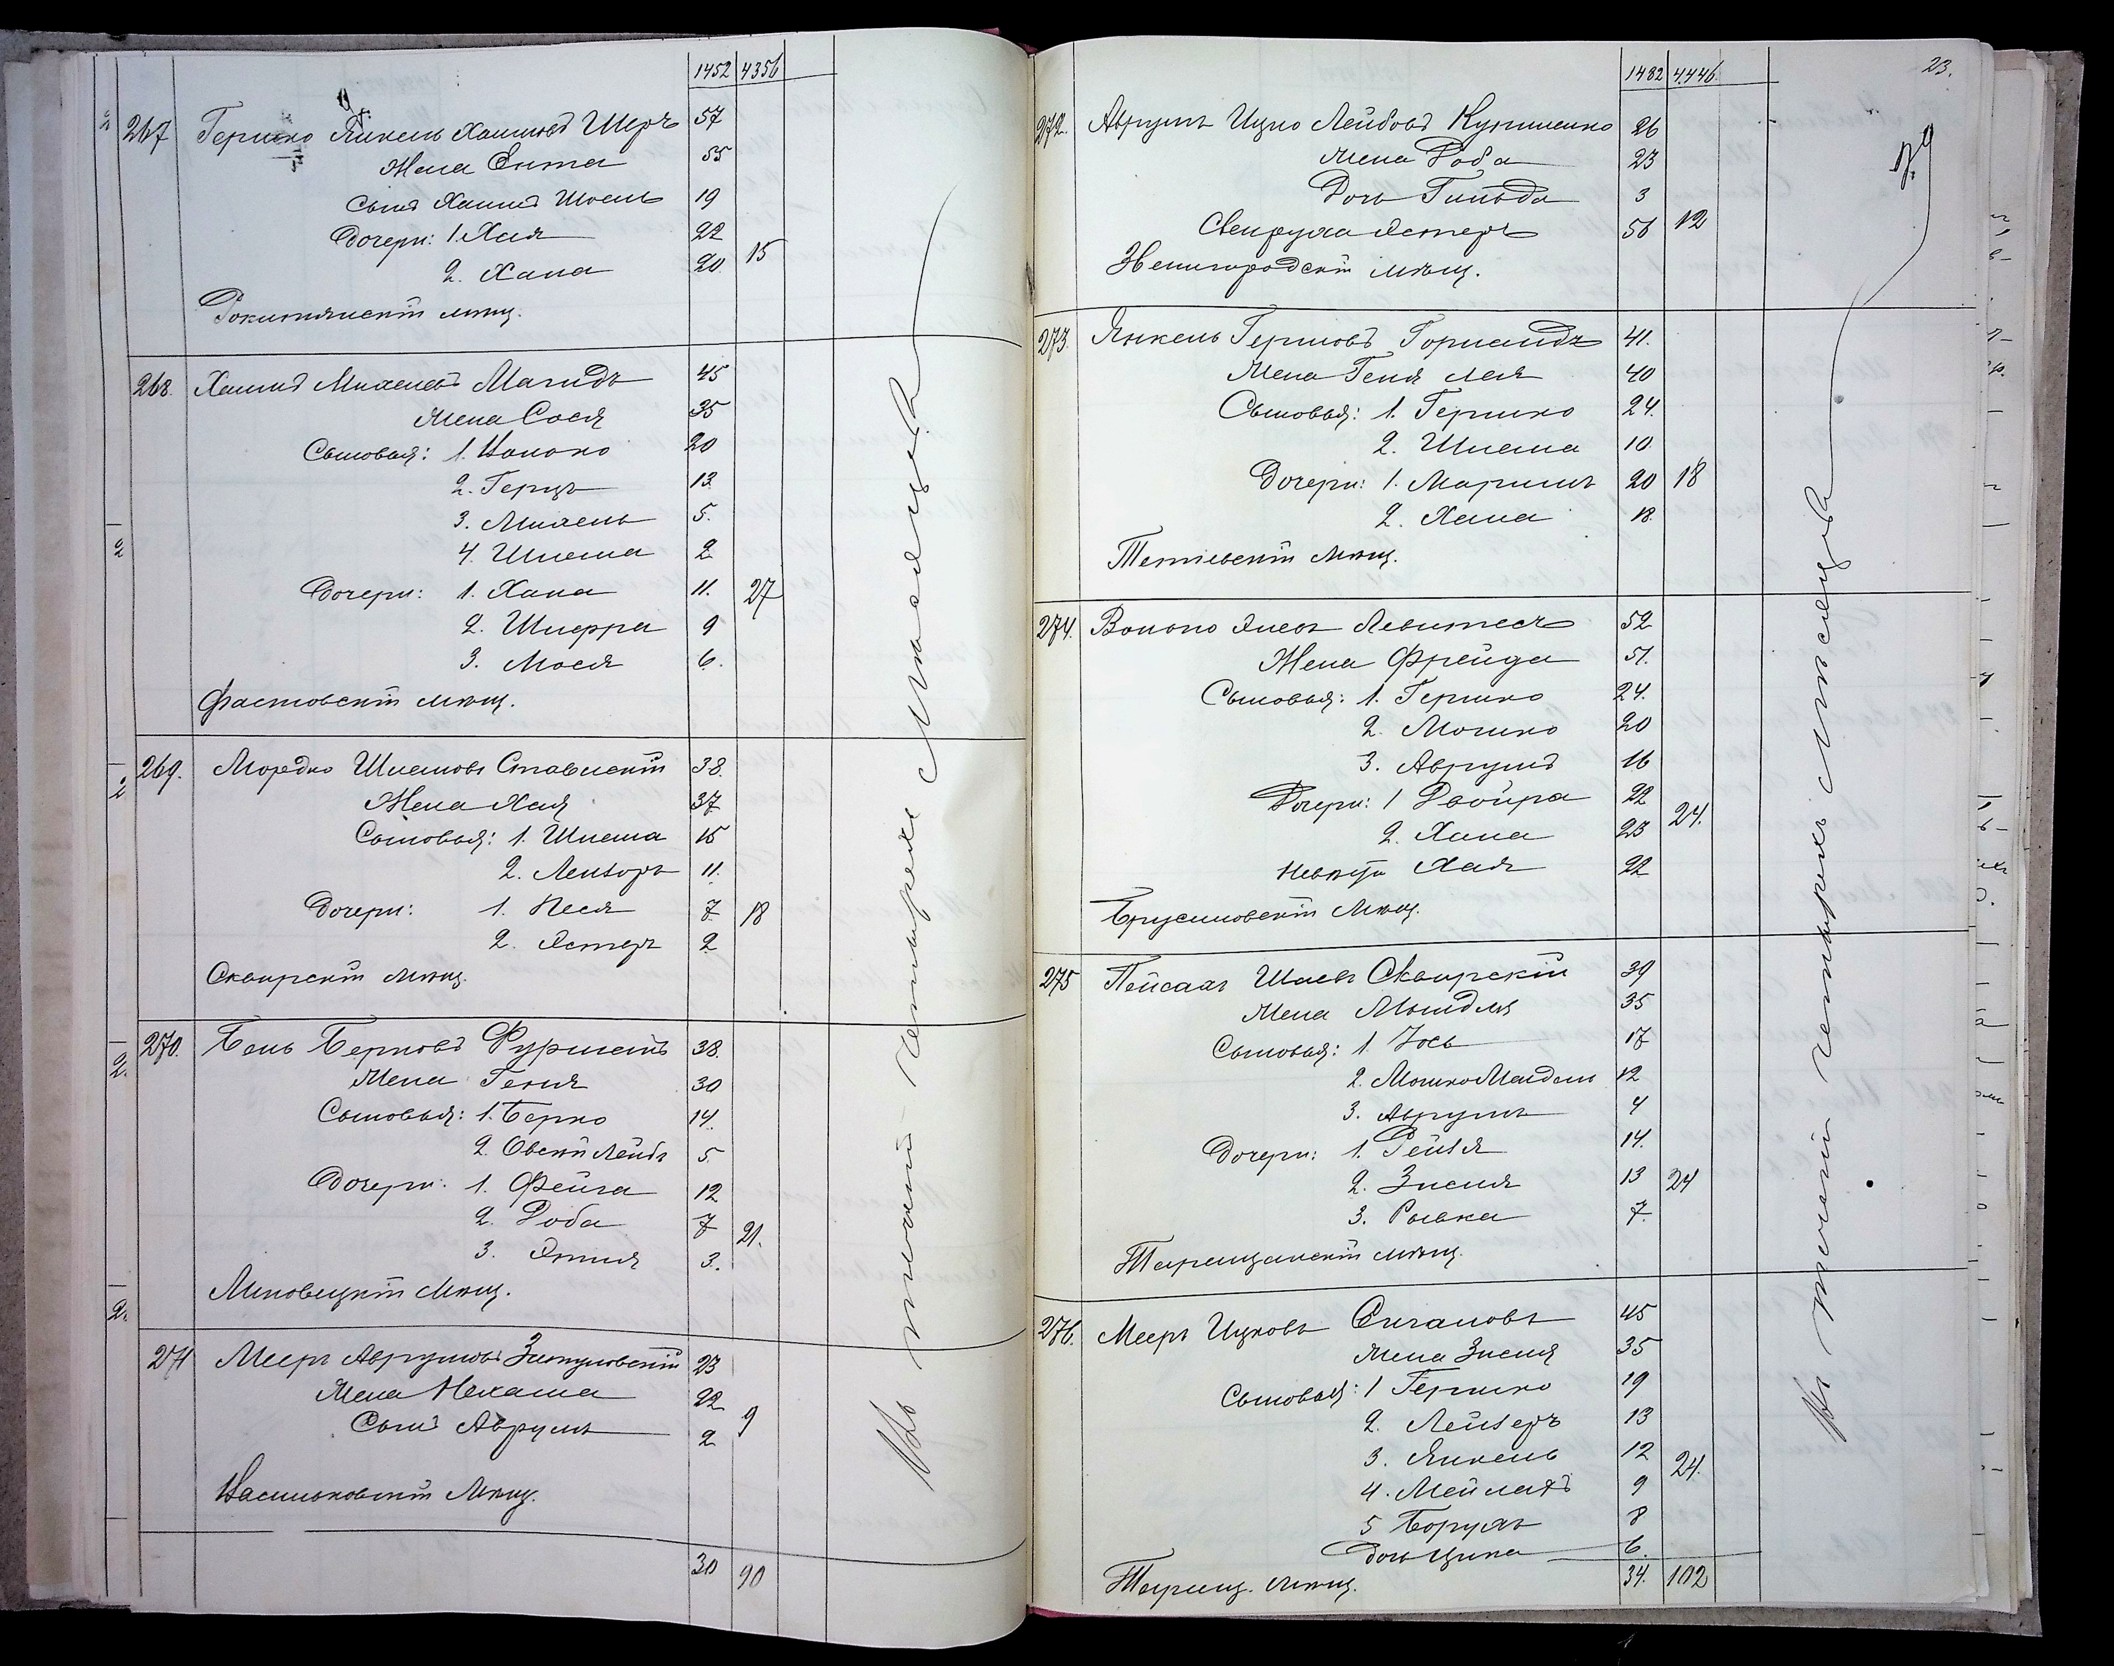 1452 4356
267 Гершко Янкель Хаимовъ Шеръ 57
Жена Ента 55
Сынъ Хаимъ Шоель 19
Дочери: 1. Хая 22
2. Хана 20 15
Рокитянскій мѣщ.
268. Хаимъ Михелевъ Магидъ 45
Жена Сося 35
Сыновья: 1. Волько 20
2. Герцъ 13
3. Михель 5.
4. Шлема 2
Дочери: 1. Хана 11. 27
2. Шифра 9
3. Мося 6.
Фастовскій мѣщ.
269. Мордко Шлемовъ Ставискій 38.
Жена Хая 37
Сыновья: 1. Шлема 15
2. Лейзоръ 11.
Дочери: 1. Песя 7 18
2. Эстеръ 2
Сквирскій мѣщ.
270. Бень Берковъ Фурметъ 38.
Жена Геня 30
Сыновья: 1. Берко 14.
2. Овсей Лейбъ 5
Дочери: 1. Фейга 12
2. Роба 7 21.
3. Этля 3.
Липовецкій мѣщ.
271 Мееръ Аврумовъ 23
Жена Нехама 22 9
Сынъ Аврумъ 2
Васильковскій мѣщ.
30 90
въ тысячи четыреста
1482 4446.
23.
272. Аврумъ Ицко Лейбовъ 26
Жена Роба 23
Дочь Гильда 3
Свекруха Эстеръ 56 12
Звенигородскій мѣщ.
273. Янкель Гершовъ Горландъ 41.
Жена Геня Лея 40
Сыновья: 1. Гершко 24.
2. Шлема 10
Дочери: 1. Маримъ 20 18
2. Хана 18.
Тетіевскій мѣщ.
274. Волько Левитесъ 52
Жена Фрейда 51.
Сыновья: 1. Гершко 24.
2. Мошко 20
3. Аврумъ 16
Дочери: 1 Двойра 22 24.
2. Хана 23
Хая 22
Брусиловскій мѣщ.
275 Пейсахъ Шаевъ Сквирскій 39
Жена Мындля 35
Сыновья: 1. Іось 17
2. Мошко Мендель 12
3. Аврумъ 4
Дочери: 1. Рейзя 14.
2. Зисля 13 24
3. Рывка 7.
Таращанскій мѣщ.
276. Мееръ Ицковъ Сигаловъ 45
Жена Зисля 35
Сыновья: 1 Гершко 19
2. Лейзеръ 13
3. Янкель 12 24.
4. Мейлахъ 9
5 Борухъ 8
Дочь Ципа 6.
Таращ. мѣщ. 34. 102